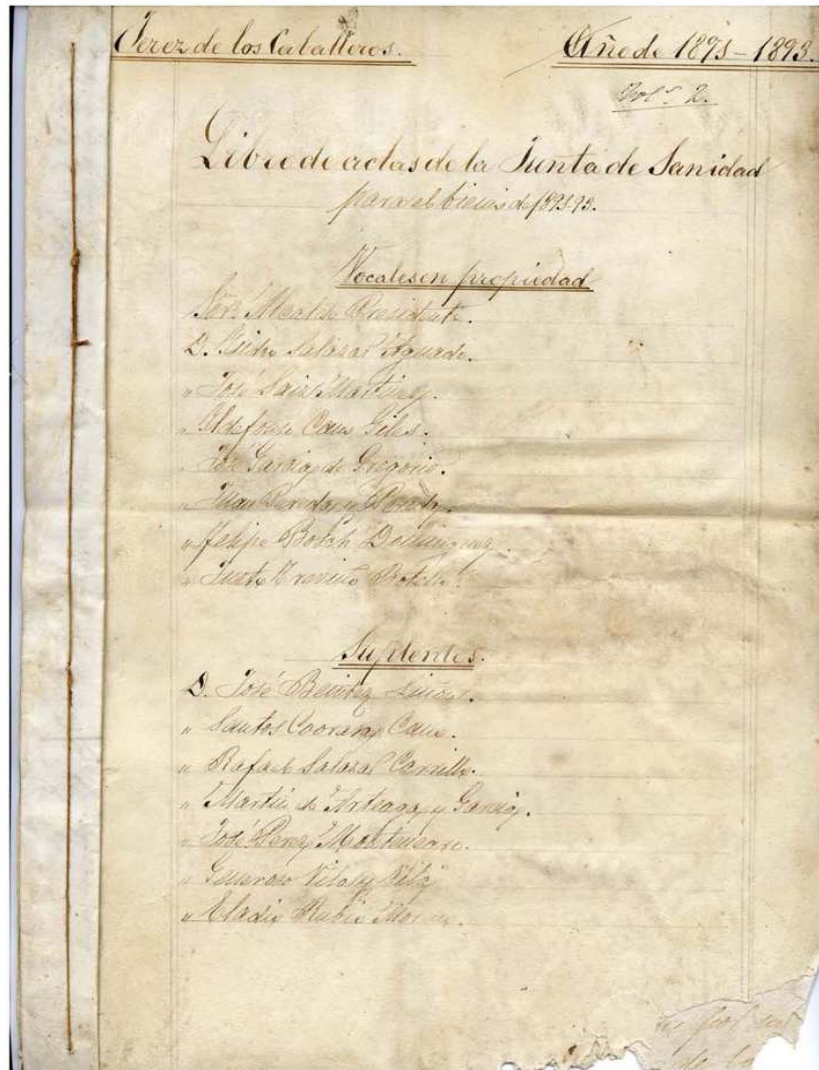 Jerez de los Caballeros. Año de 1891-1893.
Fol.º 2.
Libro de actas de la Junta de Sanidad
para el bienio de 1891-93.
Vocales en propiedad
Sor. Alcalde Presidente.
D. Isidro Salazar Aguado.
" José Sainz Martinez.
" Ildefonso Cano Giles.
" José Garcia de Gregorio.
" Juan Paredes y
" Felipe Bosch Dominguez.
" Justo Treviño Botello.
Suplentes.
D. José Benitez
" Santos Cano.
" Rafael Salazar Carrillo.
" Martin de Arteaga y Garcia.
" José Perez
" Generoso
" Eladio Rubio